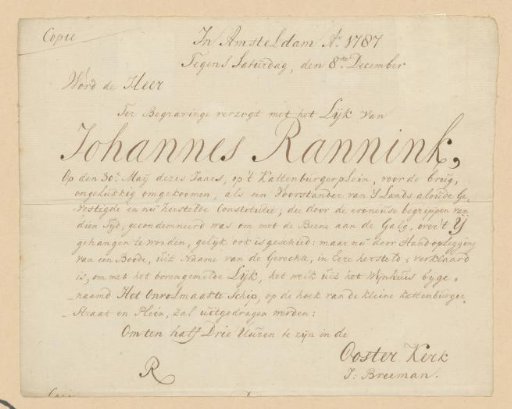 Copie
In Amsteldam Aº. 1787
Tegens Saturdag, den 8ste December
Word de Heer
Ter Begraavinge verzogt met het Lijk van
Johannes Rannink,
Op den 30e. Maij dezes Jaars, op 't Kattenburgerplein, voor de brug,
ongelukkig omgekoomen, als een Voorstander van 's Lands aloude Ge-
vestigde en nu herstelde Constitutie, die door de erroneuse begrippen van
dien tijd, gecondemneerd was om met de Beene aan de Galg, over 't Y
gehangen te worden, gelijk ook is geschied: maar nu door Handoplegging
van een Bode, uit Naame van de Gerechte, in Eere hersteld, verklaard
is, om met het bovengemelde Lijk, het welk uit het Wijnhuis byge-
naamd Het Onvolmaakte Schip, op de hoek van de kleine Kattenburger
Straat en Plein, zal uitgedragen worden:
Om ten half Drie Uuren te zijn in de
Ooster Kerk
R
J: Breeman.